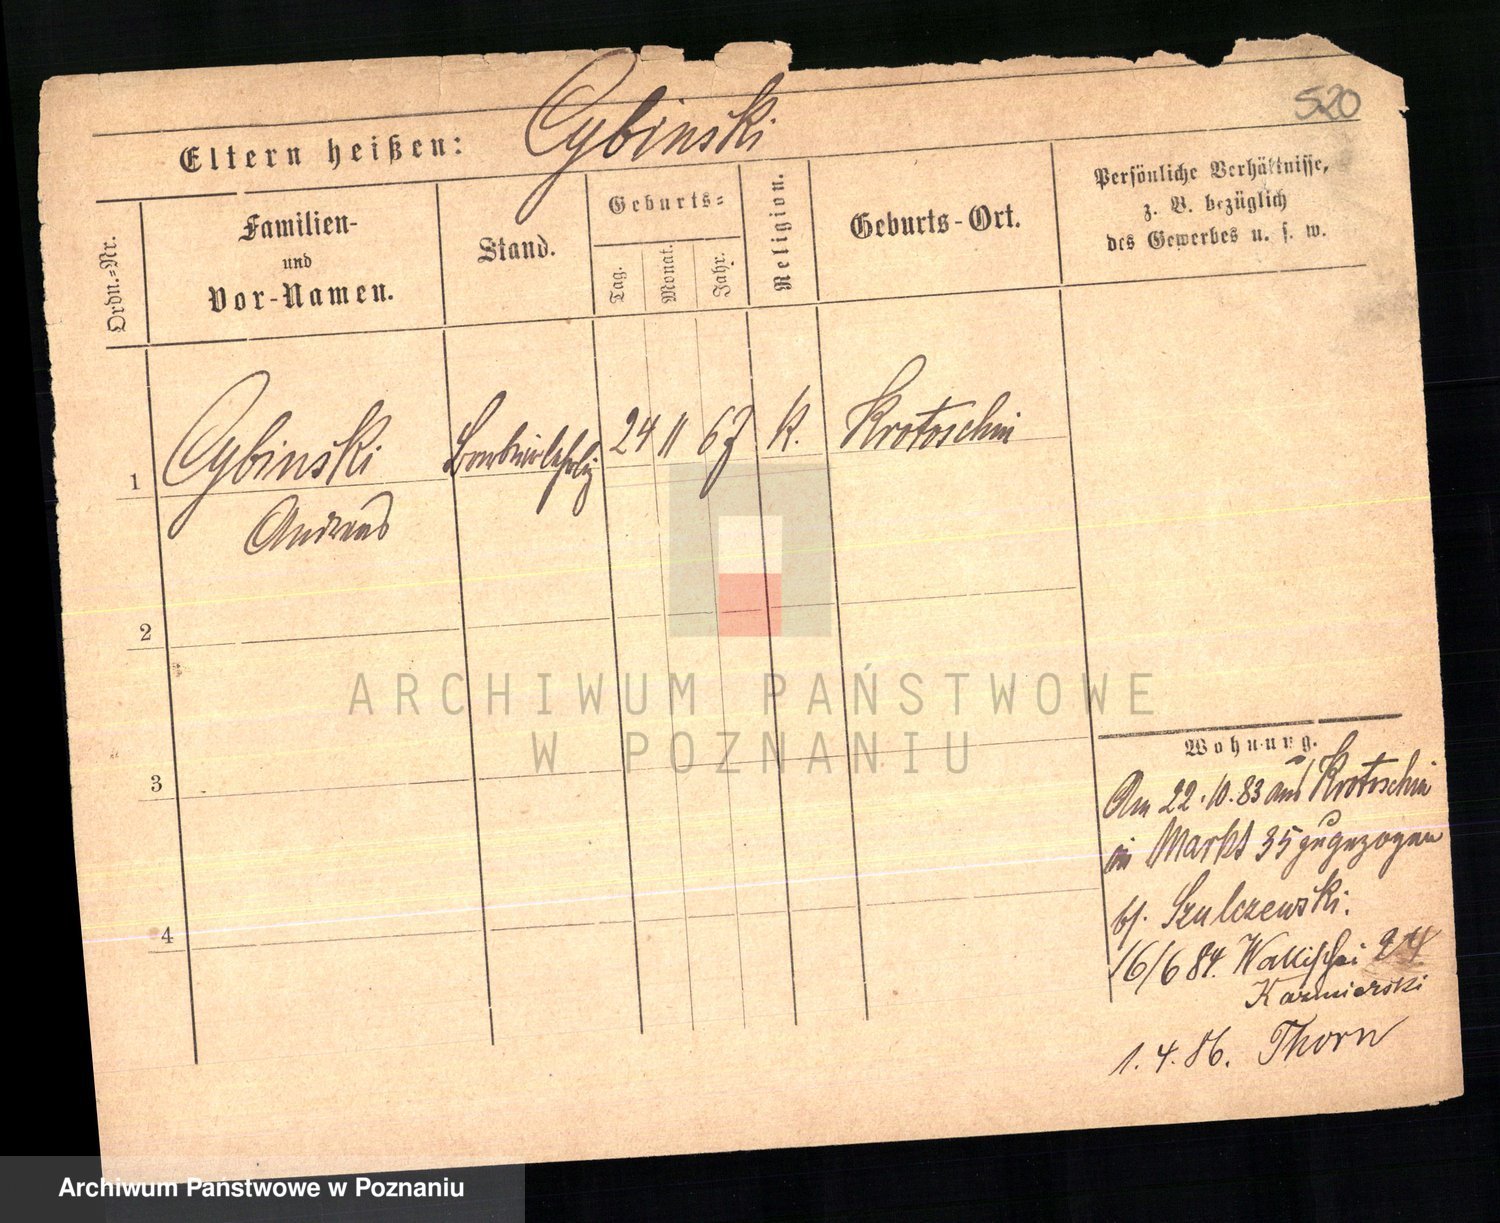 520
Cybinski
Eltern heißen:
Ordn.-Nr.
Familien-
und
Vor-Namen.
Stand.
Geburts-
Tag.
Monat.
Jahr.
Religion.
Geburts-Ort.
Persönliche Verhältnisse,
z. B. bezüglich
des Gewerbes u. s. w.
1 Cybinski Barbierlehrlig 24 11 67 K. Krotoschin
Andreas
2
3
4
ARCHIWUM PAŃSTWOWE
W POZNANIU
Wohnung.
Am 22.10.83 aus Krotoschin
in Markt 35 zugezogen
bj. Szulczewski.
16/6 84. Wallischei
Kazmierski
1.4.86. Thorn
Archiwum Państwowe w Poznaniu